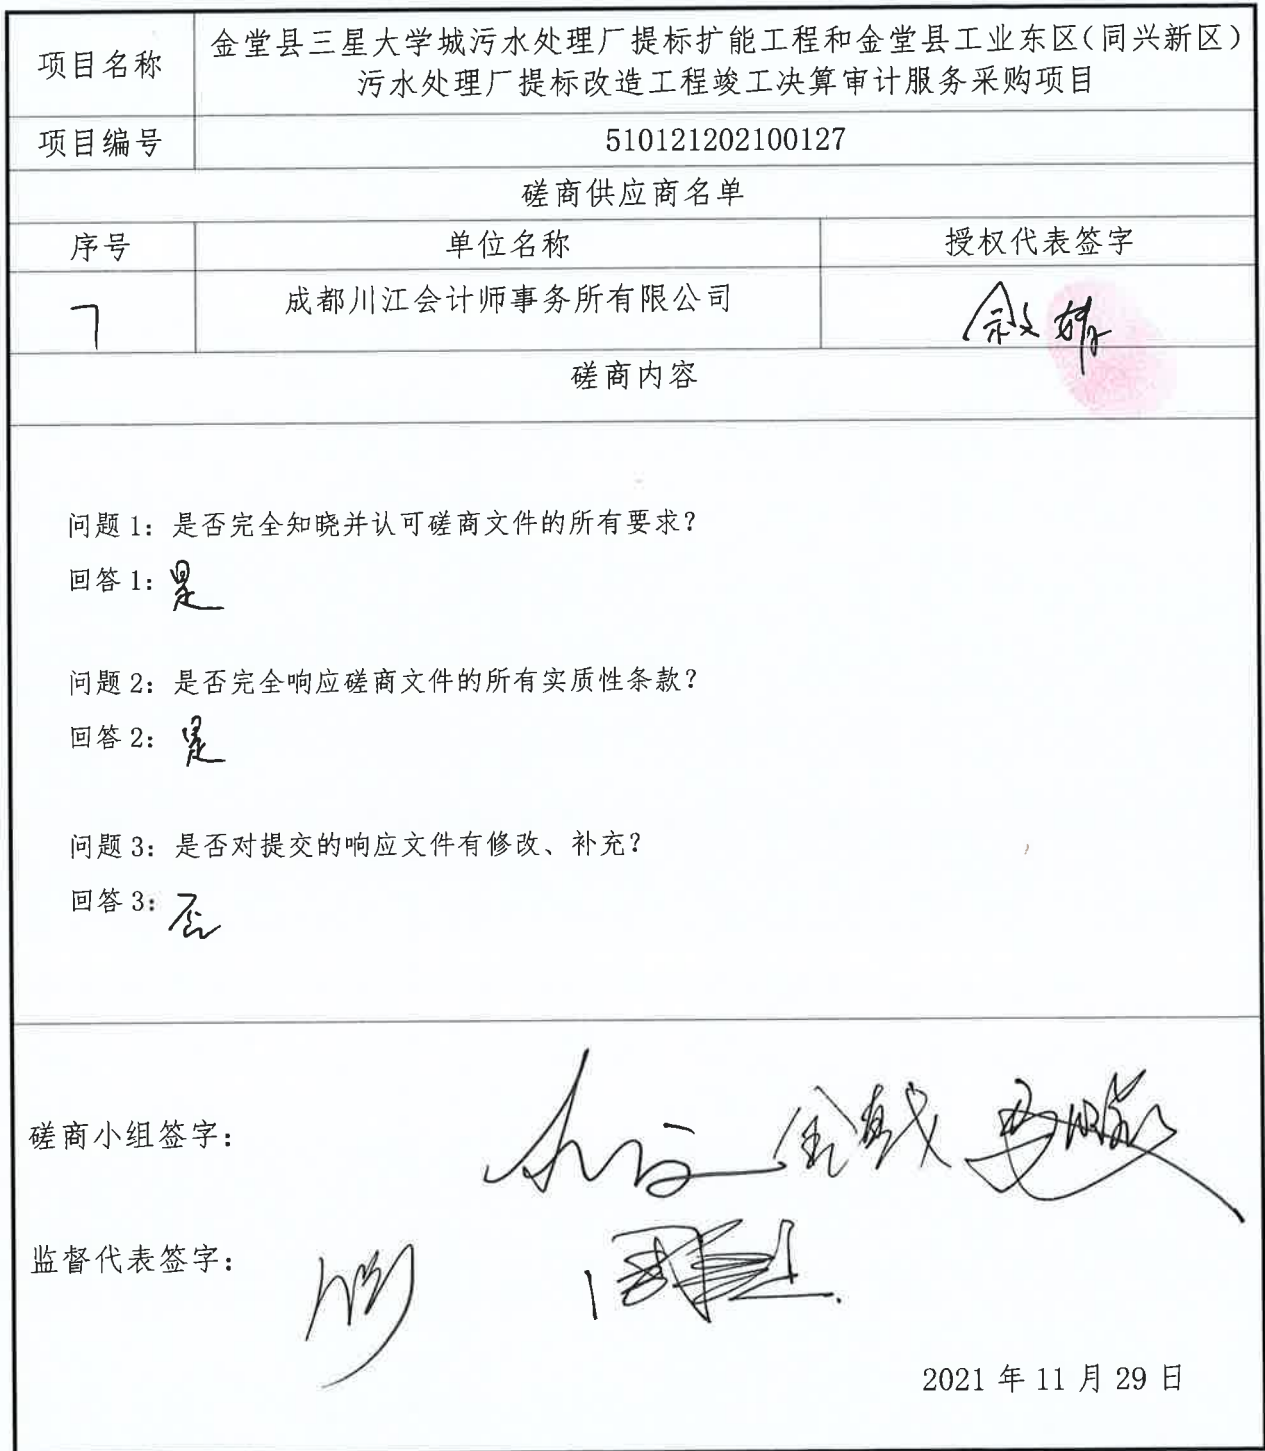 项目名称
金堂县三星大学城污水处理厂提标扩能工程和金堂县工业东区(同兴新区)
污水处理厂提标改造工程竣工决算审计服务采购项目
项目编号
510121202100127
磋商供应商名单
序号
单位名称
授权代表签字
7
成都川江会计师事务所有限公司
磋商内容
问题1：是否完全知晓并认可磋商文件的所有要求？
回答1：是
问题2：是否完全响应磋商文件的所有实质性条款？
回答2：是
问题3：是否对提交的响应文件有修改、补充？
回答3：否
磋商小组签字：
监督代表签字：
2021年11月29日